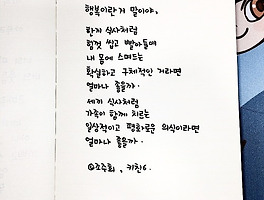 행복이란 게 말이야,
한끼 식사처럼
힘껏 씹고 빨아들여
내 몸에 스며드는
확실하고 구체적인 거라면
얼마나 좋을까.
세끼 식사처럼
가족이 함께 치르는
일상적이고 평화로운 의식이라면
얼마나 좋을까.
@조준희, 키친6.